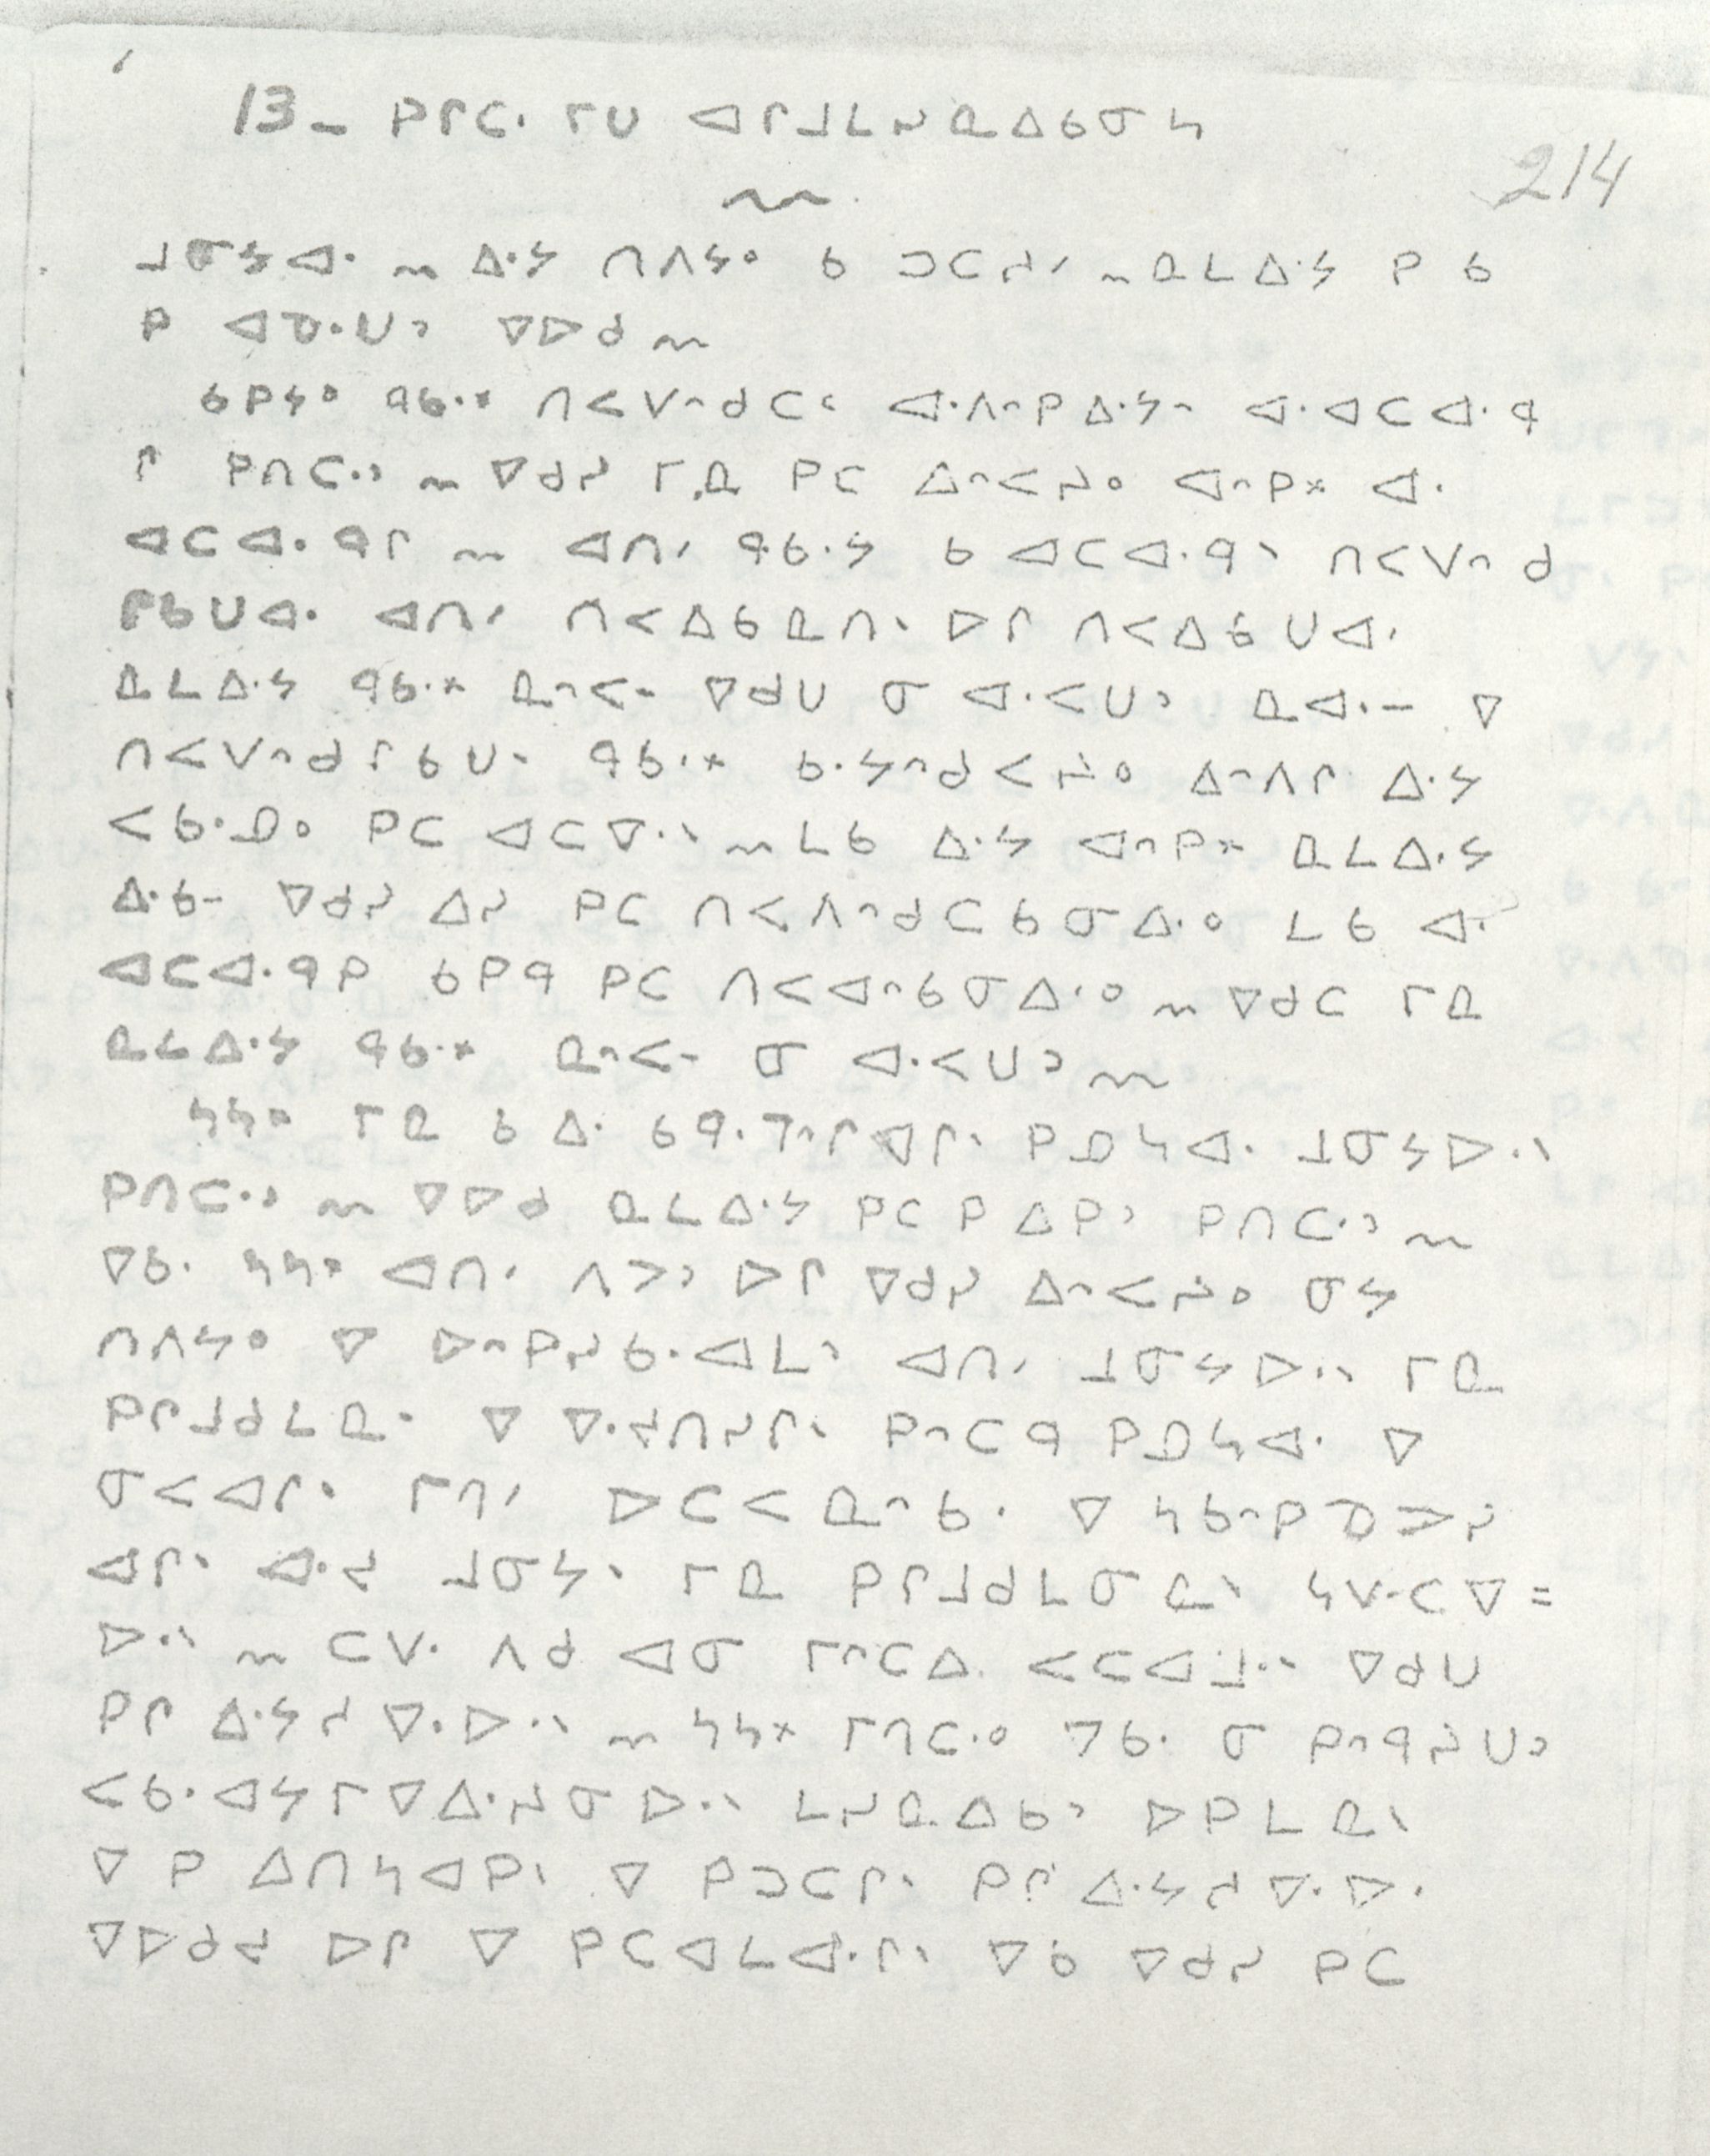 13- ᑭᒋᑕᐧ ᒥᑌ ᐊᒋᒧᒪᓱᓇᐃᑲᓂᓴ
214
ᒧᓂᔭᐊᐧ ~ ᐃᐧᔭ ᑎᐱᔭᐤ ᑲ ᑐᑕᑯᐟ ~ ᓇᒪᐃᐧᔭ ᑭ ᑲ
ᑭ ᐊᓀᐧᑌᐣ ᐁᐅᑯ ~
ᑲᑭᔭᐤ ᑫᑲᐧᕀ ᑎᐸᐯᐢᑯᑕᑦ ᐊᐧᐱᐢᑭᐃᐧᔭᐢ ᐊᐧᐊᑕᐊᐧᑫ
ᒋ ᑭᑎᑕᐧᐣ ~ ᐁᑯᓯ ᒥᓇ ᑭᑕ ᐃᐢᐸᔨᐤ ᐊᐢᑭᕽ ᐊᐧ
ᐊᑕᐊᐧᑫᒋ ~ ᐊᑎᐟ ᑫᑲᐧᔭ ᑲ ᐊᑕᐊᐧᑫᐠ ᑎᐸᐯᐢᑯ
ᒋᑲᑌᐊᐧ ᐊᑎᐟ ᑎᐸᐃᑲᓇᑎᐠ ᐅᒋ ᑎᐸᐃᑲᑌᐊᐧ
ᓇᒪᐃᐧᔭ ᑫᑲᐧᕀ ᓇᐢᐸᐨ ᐁᑯᑌ ᓂ ᐊᐧᐸᑌᐣ ᓇᐊᐧᐨ ᐁ
ᑎᐸᐯᐢᑯᒋᑲᑌᐠ ᑫᑲᐧᕀ ᑲᐧᔭᐢᑯᐸᔨᐤ ᐃᐢᐱᒋ ᐃᐧᔭ
ᐸᑲᐧᓄᐤ ᑭᑕ ᐊᑕᐁᐧᐠ ~ ᒪᑲ ᐃᐧᔭ ᐊᐢᑭᕽ ᓇᒪᐃᐧᔭ
ᐃᐧᑲᐨ ᐁᑯᓯ ᐃᓯ ᑭᑕ ᑎᐸᐱᐢᑯᑕᑲᓂᐃᐧᐤ ᒪᑲ ᐊᐧ
ᐊᑕᐊᐧᑫᑭ ᑲᑭᑫ ᑭᑕ ᑎᐸᐊᐢᑲᓂᐃᐧᐤ ~ ᐁᑯᑕ ᒥᓇ
ᓇᒪᐃᐧᔭ ᑫᑲᐧᕀ ᓇᐢᐸᐨ ᓂ ᐊᐧᐸᑌᐣ ~
ᓴᓴᕀ ᒥᓇ ᑲ ᐃᐧ ᑲᑫᐧᒣᐢᒋᐊᒋᐠ ᑭᓄᓴᐊᐧ ᒧᓂᔭᐅᐧᐠ
ᑭᑎᑕᐧᐣ ~ ᐁᐅᑯ ᓇᒪᐃᐧᔭ ᑭᑕ ᑭ ᐃᑭᐣ ᑭᑎᑕᐧᐣ ~
ᐁᑲᐧ ᓴᓴᕀ ᐊᑎᐟ ᐱᐳᐣ ᐅᒋ ᐁᑯᓯ ᐃᐢᐸᔨᐤ ᓂᔭ
ᑎᐱᔭᐤ ᐁ ᐅᐢᑭᓯᑲᐧᐊᒪᐣ ᐊᑎᐟ ᒧᓂᔭᐅᐧᐠ ᒥᓇ
ᑭᒋᒧᑯᒪᓇᐠ ᐁ ᐁᐧᔪᑎᓯᒋᐠ ᑭᐢᑕᑫ ᑭᓄᓴᐊᐧ ᐁ
ᓂᐸᐊᒋᐠ ᒥᑎᐟ ᐅᑕᐸᓇᐢᑲᐧ ᐁ ᓴᑲᐢᑭᓀᐳᓯ
ᐊᒋᐠ ᐊᐧᔪ ᒧᓂᔭᐠ ᒥᓇ ᑭᒋᒧᑯᒪᓂᓇᐠ ᓴᐯᐧᑕᐁ=
ᐅᐧᐠ ~ ᑕᐯᐧ ᐱᑯ ᐊᓂ ᒥᐢᑕᐃ ᐸᑕᐊᒧᐧᐠ ᐁᑯᑌ
ᑭᒋ ᐃᐧᔭᔪᐁᐧᐅᐧᐠ ~ ᓴᓴᕀ ᒥᑎᑕᐧᐤ ᒣᑲᐧ ᓂ ᑭᐢᑫᔨᑌᐣ
ᐸᑲᐧᐊᔭᒥᐁᐃᐧᔨᓂᐅᐧᐠ ᒪᓯᓇᐃᑲᐣ ᐅᑭᒪᓇᐠ
ᐁ ᑭ ᐃᑎᓴᐊᑭᐠ ᐁ ᑭᑐᑕᒋᐠ ᑭᒋ ᐃᐧᔭᔪᐁᐧᐅᐧ
ᐁᐅᑯᔪ ᐅᒋ ᐁ ᑭᑕᐊᒪᐊᐧᒋᐠ ᐁᑲ ᐁᑯᓯ ᑭᑕ